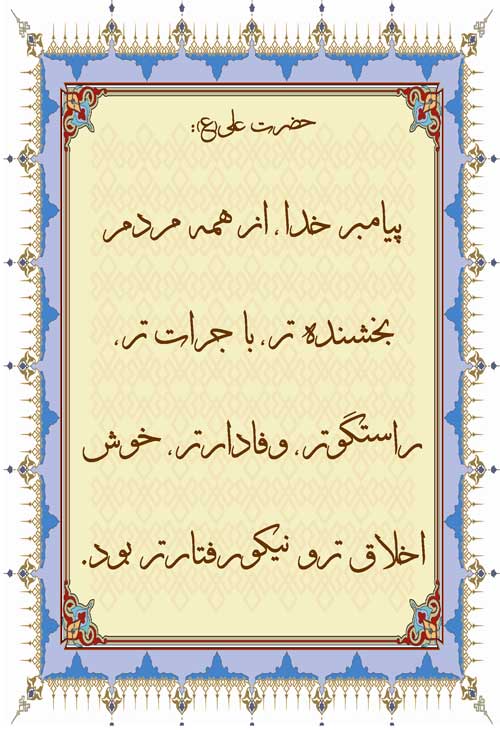 حضرت علی(ع):
پیامبر خدا، از همه مردم
بخشنده تر، با جرات تر،
راستگوتر، وفادارتر، خوش
اخلاق ترو نیکورفتارتر بود.